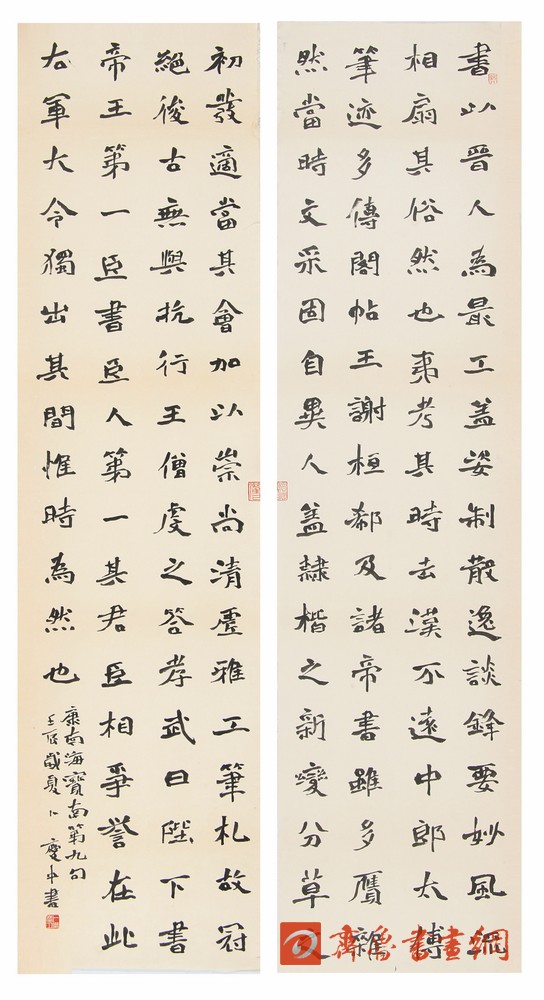 書以晉人為最工蓋姿制散逸談鋒要妙風流
相扇其俗然也夷考其時去漢不遠中郎太傅
筆迹多傳閣帖王謝桓郗及諸帝書雖多贋雜
然當時文采固自異人蓋隸楷之新變分草
初發適當其會加以崇尚清虛雅工筆札故冠
絕後古無與抗行王僧虔之答孝武曰陛下書
帝王第一臣書臣人第一其君臣相爭譽在此
右軍大令獨出其間惟時為然也
康南海寶南第九句
壬辰歲夏卜慶中書
齊魯書畫網